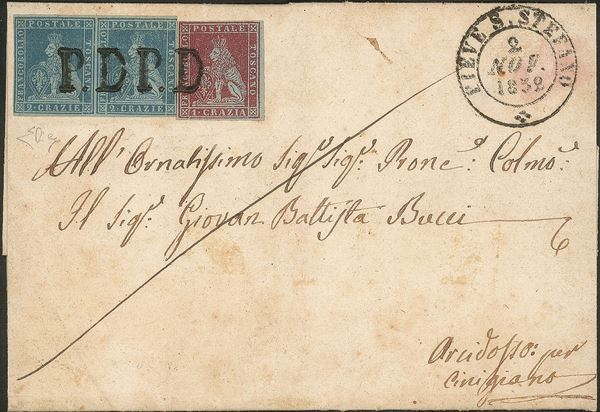 FRANCOBOLLO POSTALE TOSCANO
2 CRAZIE
FRANCOBOLLO POSTALE TOSCANO
2 CRAZIE
FRANCOBOLLO POSTALE TOSCANO
1 CRAZIA
P.D P.D
PIEVE S. STEFANO
2
NOV.
1852
All' Ornatissimo Sigr. Sigr. Prone: Colmo:
Il Sigr. Giovan Battista Bucci
Arcidosso: per
Cinigiano